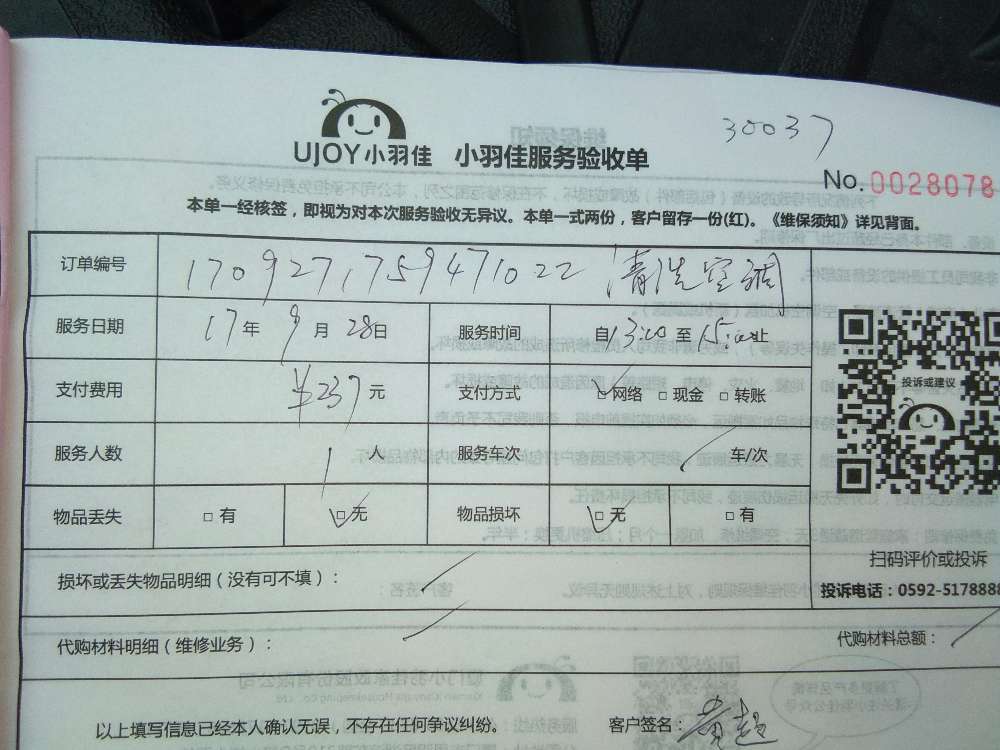 30037
UJOY小羽佳 小羽佳服务验收单
No. 0028078
本单一经核签，即视为对本次服务验收无异议。本单一式两份，客户留存一份(红)。《维保须知》详见背面。
订单编号 1709271759471022 清洗空调
服务日期 17年9月28日 服务时间 自13:00至15:00止
支付费用 ¥237元 支付方式 □网络 □现金 □转账
服务人数 1人 服务车次 车/次
物品丢失 □有 □无 物品损坏 □无 □有
投诉或建议
扫码评价或投诉
投诉电话：0592-5178888
损坏或丢失物品明细（没有可不填）：
代购材料明细（维修业务）： 代购材料总额：
以上填写信息已经本人确认无误，不存在任何争议纠纷。 客户签名：黄超